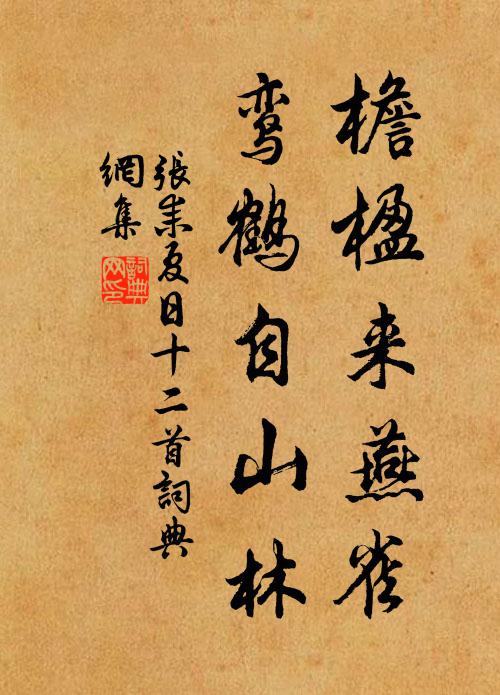 檐楹来燕雀
鸾鹤自山林
張耒夏日十二首詞典
網集
詞典
网印